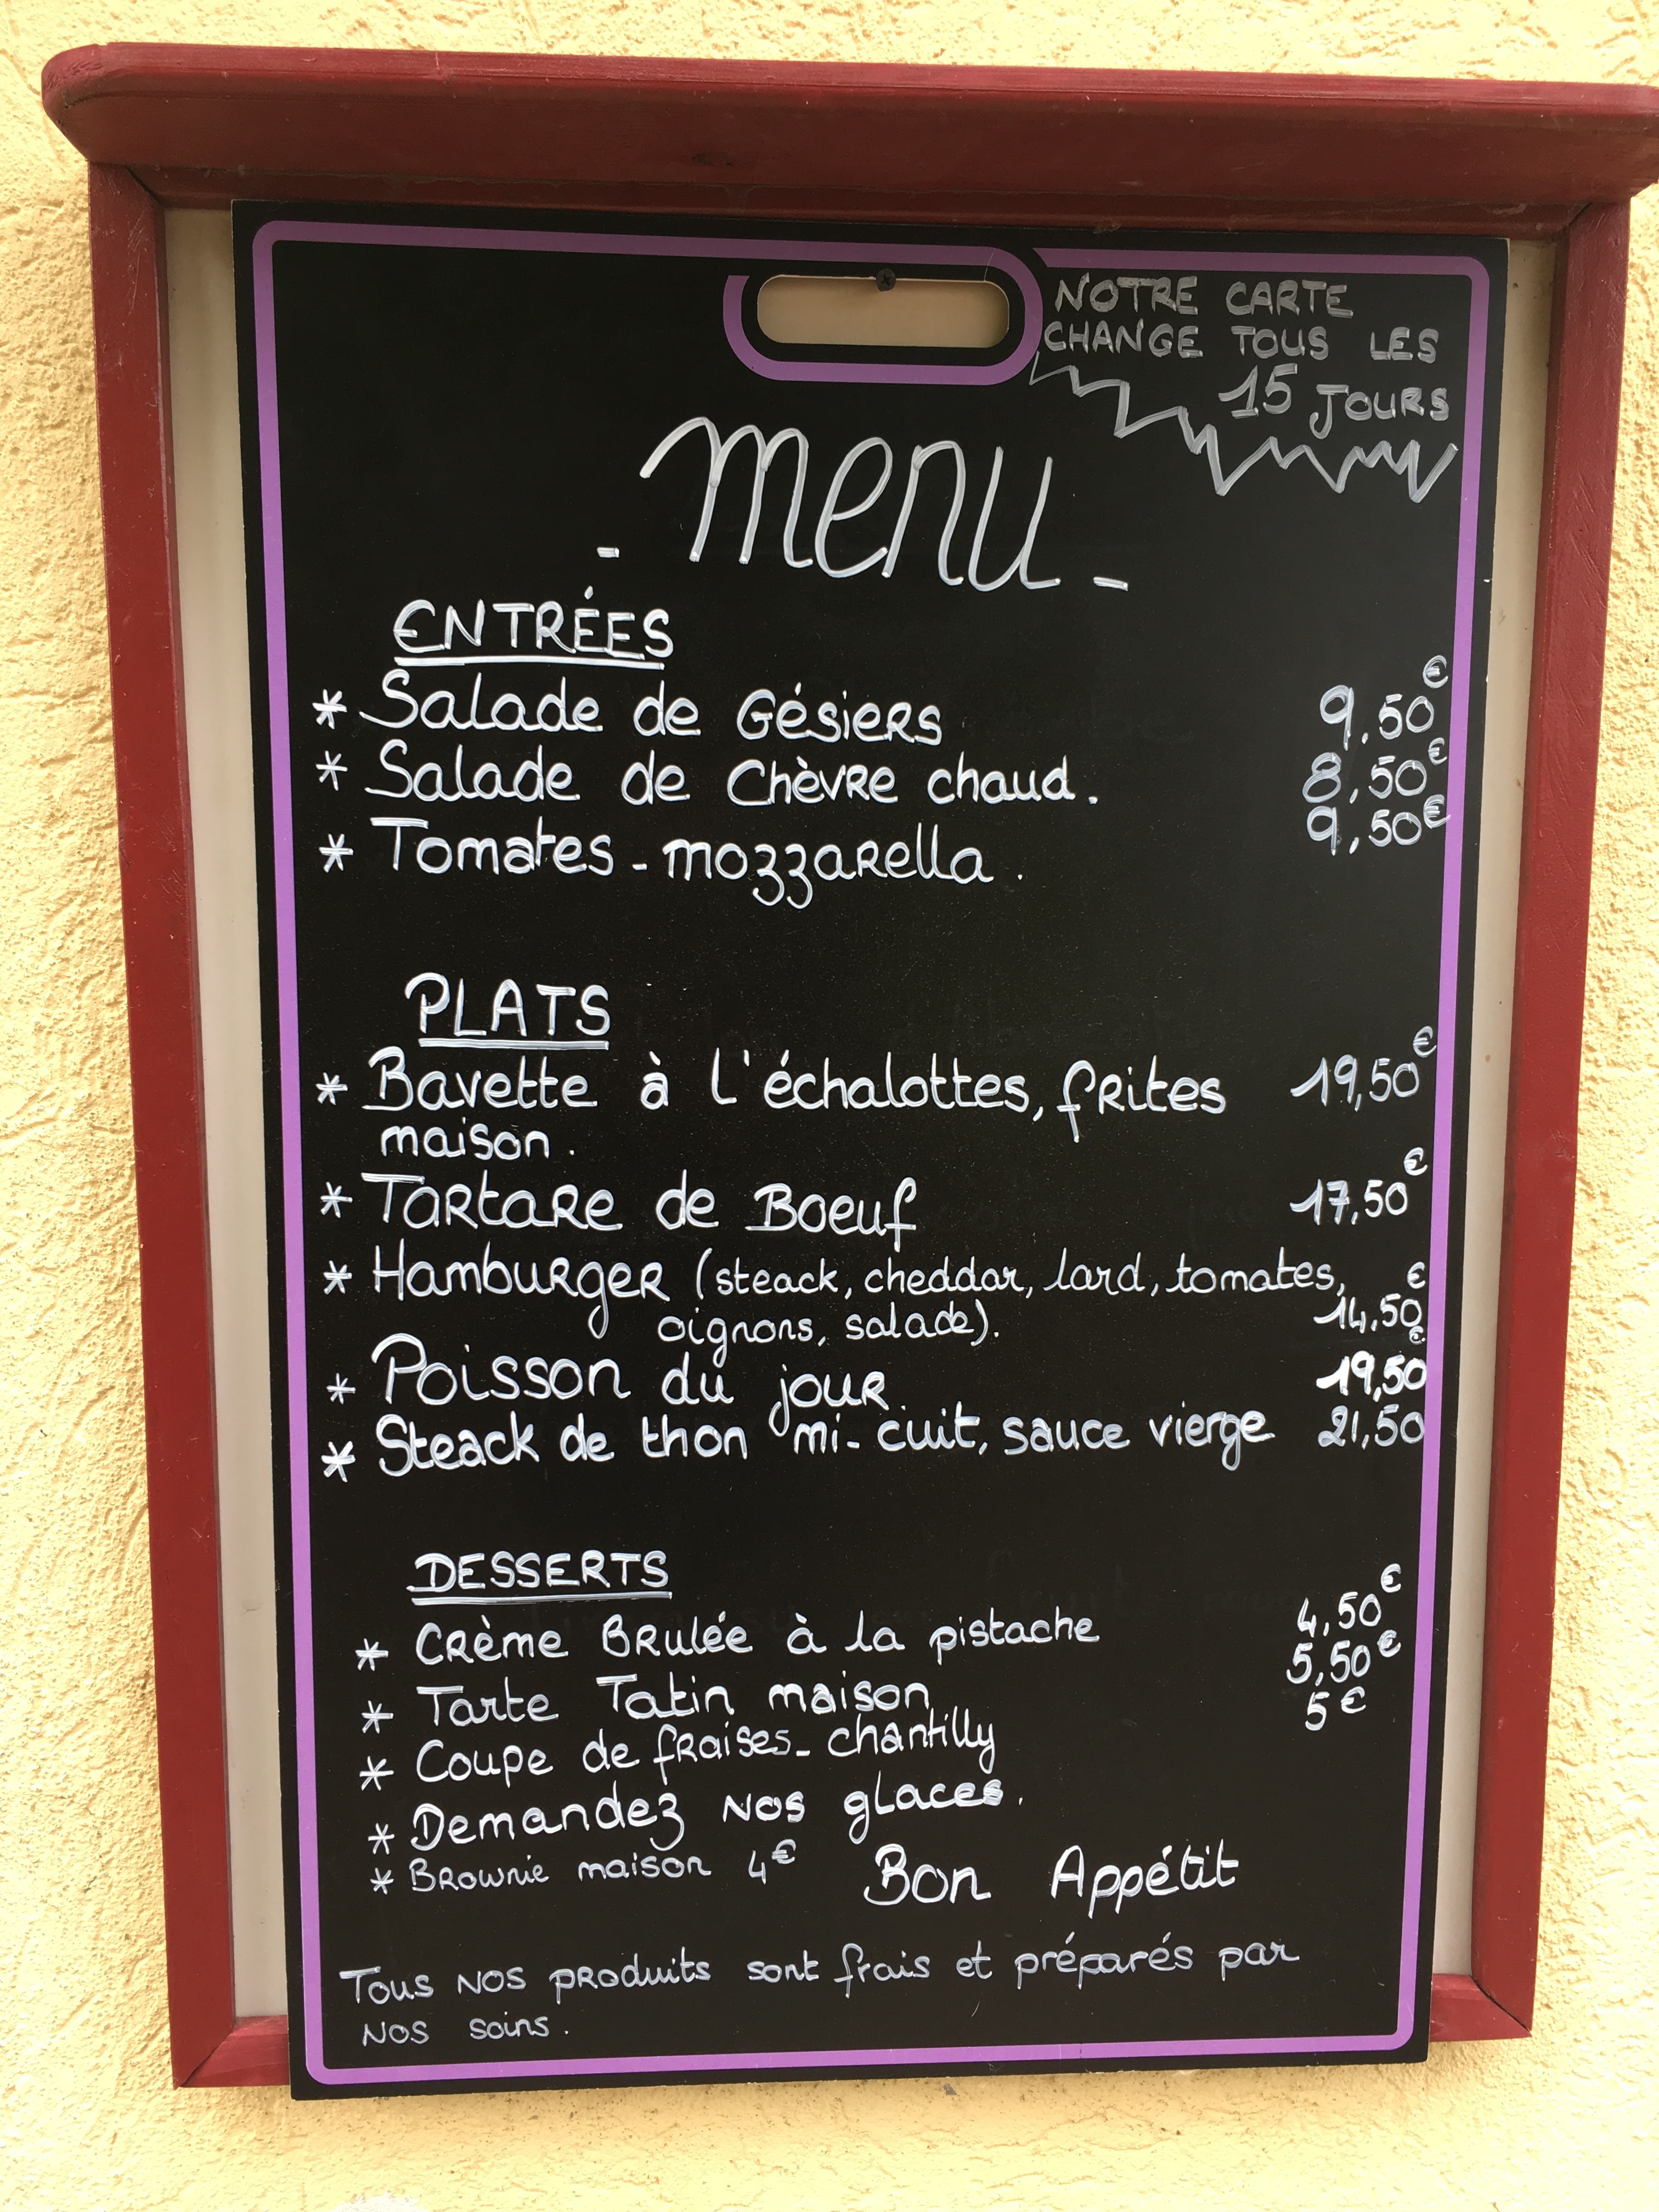 NOTRE CARTE
CHANGE TOUS LES
15 JOURS
- menu -
ENTRÉES
* Salade de Gésiers 9,50€
* Salade de Chèvre chaud. 8,50€
* Tomates - mozzarella. 9,50€
PLATS
* Bavette à l'échalottes, frites 19,50€
maison.
* Tartare de Boeuf 17,50€
* Hamburger (steack, cheddar, lard, tomates,
oignons, salade). 14,50€
* Poisson du jour. 19,50€
* Steack de thon mi-cuit, sauce vierge 21,50
DESSERTS
* Crème Brulée à la pistache 4,50€
* Tarte Tatin maison 5,50€
* Coupe de fraises - chantilly 5€
* Demandez nos glaces.
* Brownie maison 4€
Bon Appétit
Tous nos produits sont frais et préparés par
nos soins.